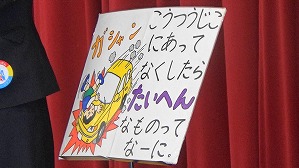 ガシャン
こうつうじこ
にあって
なくしたら
たいへん
なものって
なーに。